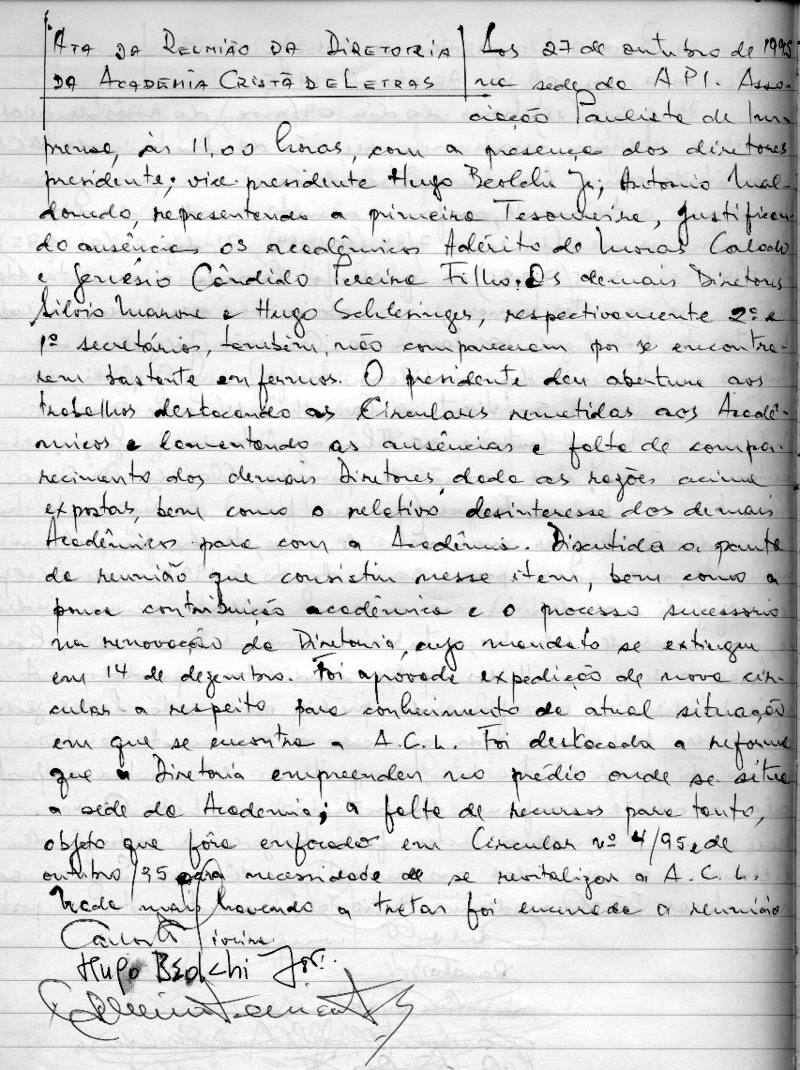 ATA DA REUNIÃO DA DIRETORIA Aos 27 de outubro de 1995
DA ACADEMIA CRISTÃ DE LETRAS na sede da API. Asso-
ciação Paulista de Im-
prensa, às 11,00 horas, com a presença dos diretores
presidente; vice-presidente Hugo Beolchi Jr; Antonio Mal-
donado, representando a primeira Tesoureira, justifican-
do ausências os acadêmicos Adérito de Moras Calado
e Genésio Cândido Pereira Filho. Os demais Diretores
Silvio Marone e Hugo Schlesinger, respectivamente 2º e
1º secretários, também, não compareceram por se encontra-
rem bastante enfermos. O presidente deu abertura aos
trabalhos destacando as Circulares remetidas aos Acadê-
micos e lamentando as ausências e falta de compa-
recimento dos demais Diretores, dada as razões acima
expostas, bem como o relativo desinteresse dos demais
Acadêmicos para com a Acadêmia. Discutida a pauta
da reunião que consistiu nesse item, bem como a
pouca contribuição acadêmica e o processo sucessorio
na renovação da Diretoria, cujo mandato se extingue
em 14 de dezembro. Foi aprovada expedição de nova cir-
cular a respeito para conhecimento da atual situação
em que se encontra a A.C.L. Foi destacada a reforma
que a Diretoria empreendeu no prédio onde se situa
a sede da Academia; a falta de recursos para tanto,
objeto que fôra enfocado em Circular nº 4/95 e de
outubro/95 para necessidade de se revitalizar a A.C.L.
Nada mais havendo a tratar foi encerrada a reunião
Hugo Beolchi Jor.